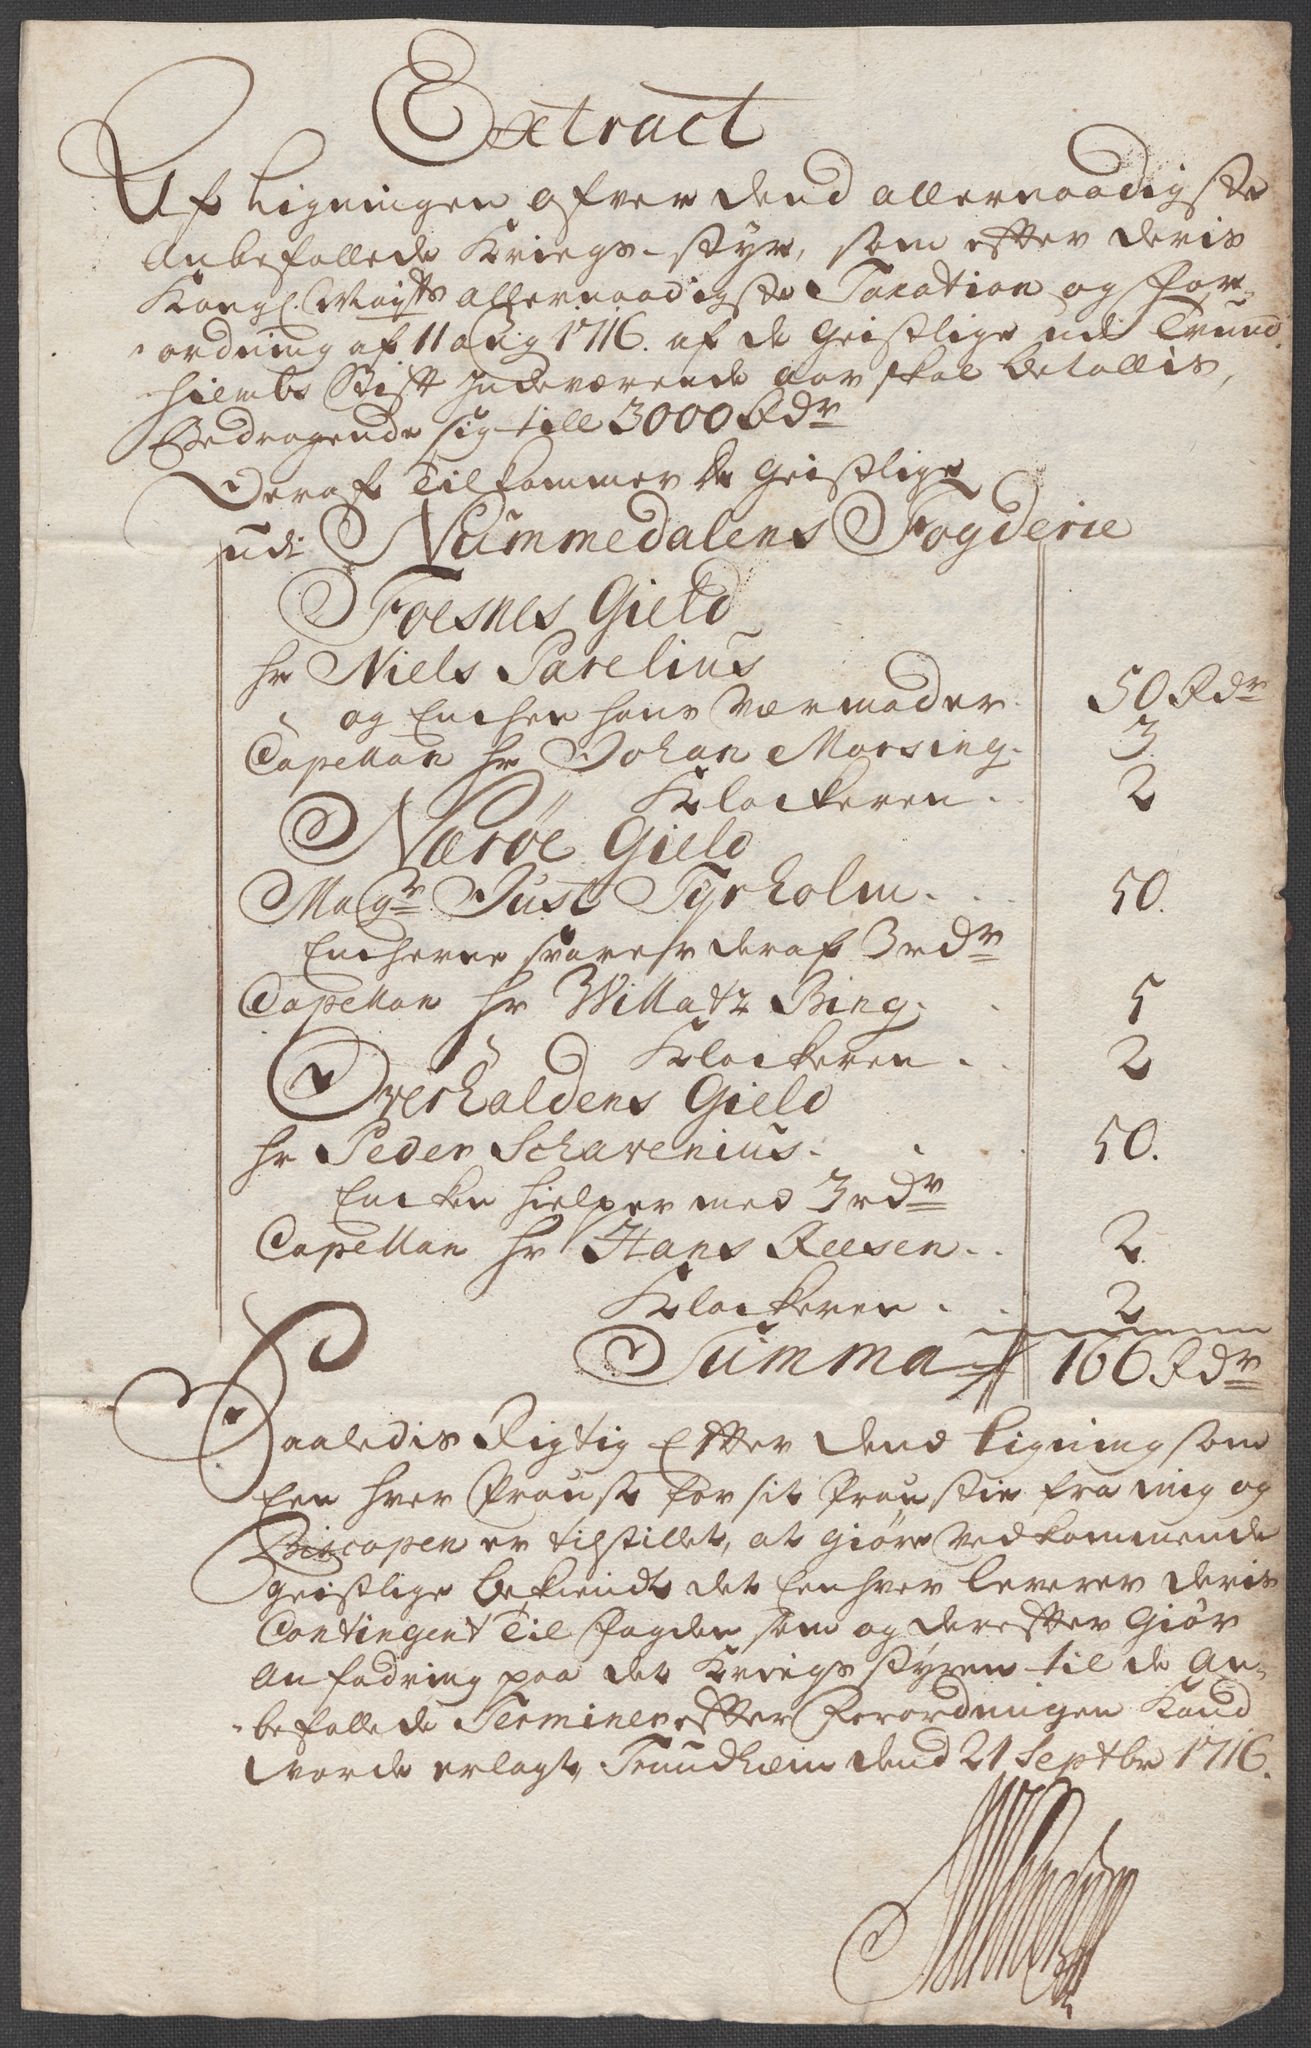 Extract
Af Ligningen ofver dend allernaadigste
Anbefallede Kriegs-styr, som efter deris
Kongl. Mayts allernaadigste Taxation og for-
ordning af 11 Aug 1716. af de Geistlige udi Trund-
hiembs Stift Indeværende aar skal betallis,
Bedragende sig till 3000 Rdr
Deraf Tilkommer de Geistlige
udi Nummedalens Fogderie
Foesnes Gield
hr Niels Parelius
og Enchen hans Værmoder 50 Rdr
Capellan hr Johan Marsing. 3
Klockeren. 2
Nærøe Gield
Magr Just Tyrholm. 50.
Encherne svarer deraf 3 rdr
Capellan hr Willatz Bing. 5
Klockeren. 2
Overhaldens Gield
hr Peder Schavenius. 50.
Encken hielper med 3 rdr
Capellan hr Hans Reesen. 2
Klockeren. 2
Summa 166 Rdr
Saaledis Rigtig Efter dend Ligning som
Een hverProust for sit Proustie fra mig og
Biscopen er tilstillet, at giøre Vedkommende
geistlige bekiendt det Eenhver leverer deris
Contingent Til fogden som og derefter Giør
Anfodring paa det Kriegs styren til de An-
befallede Terminer efter Forordningen Kand
vorde erlagt, Trundhæm dend 21 Septbr 1716.